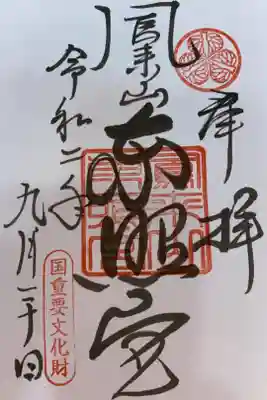 奉拝
鳳来山
東照宮
令和二年
九月二十日
国重要文化財